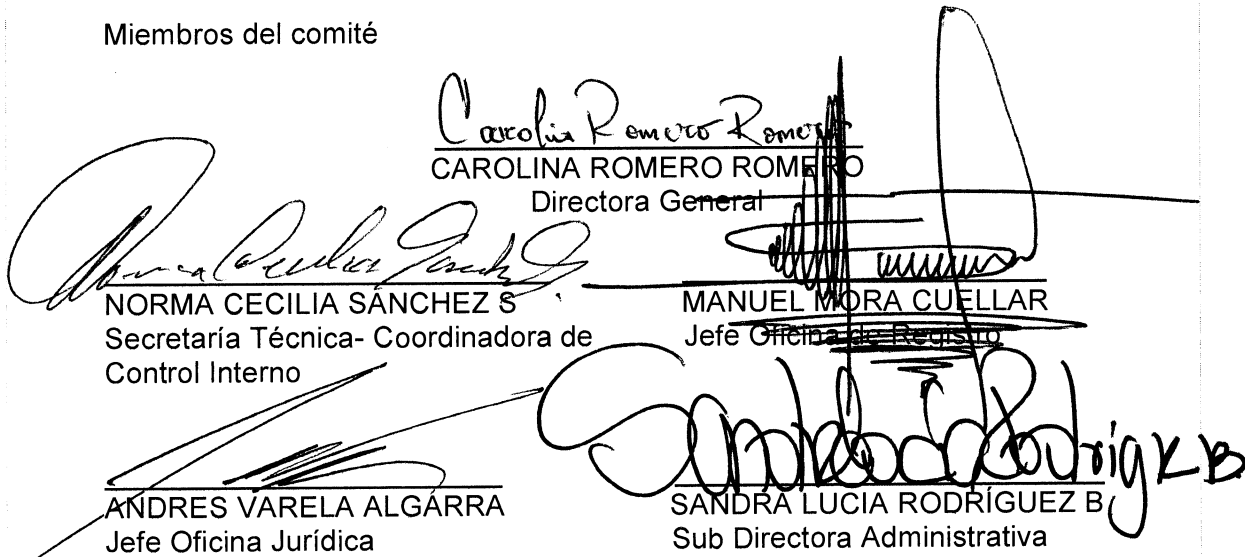 Miembros del comité
Carolina Romero Romero
CAROLINA ROMERO ROMERO
Directora General
Norma Cecilia Sánchez S
NORMA CECILIA SÁNCHEZ S
Secretaría Técnica- Coordinadora de
Control Interno
MANUEL MORA CUELLAR
Jefe Oficina de Registro
ANDRES VARELA ALGARRA
Jefe Oficina Jurídica
SANDRA LUCIA RODRÍGUEZ B
Sub Directora Administrativa